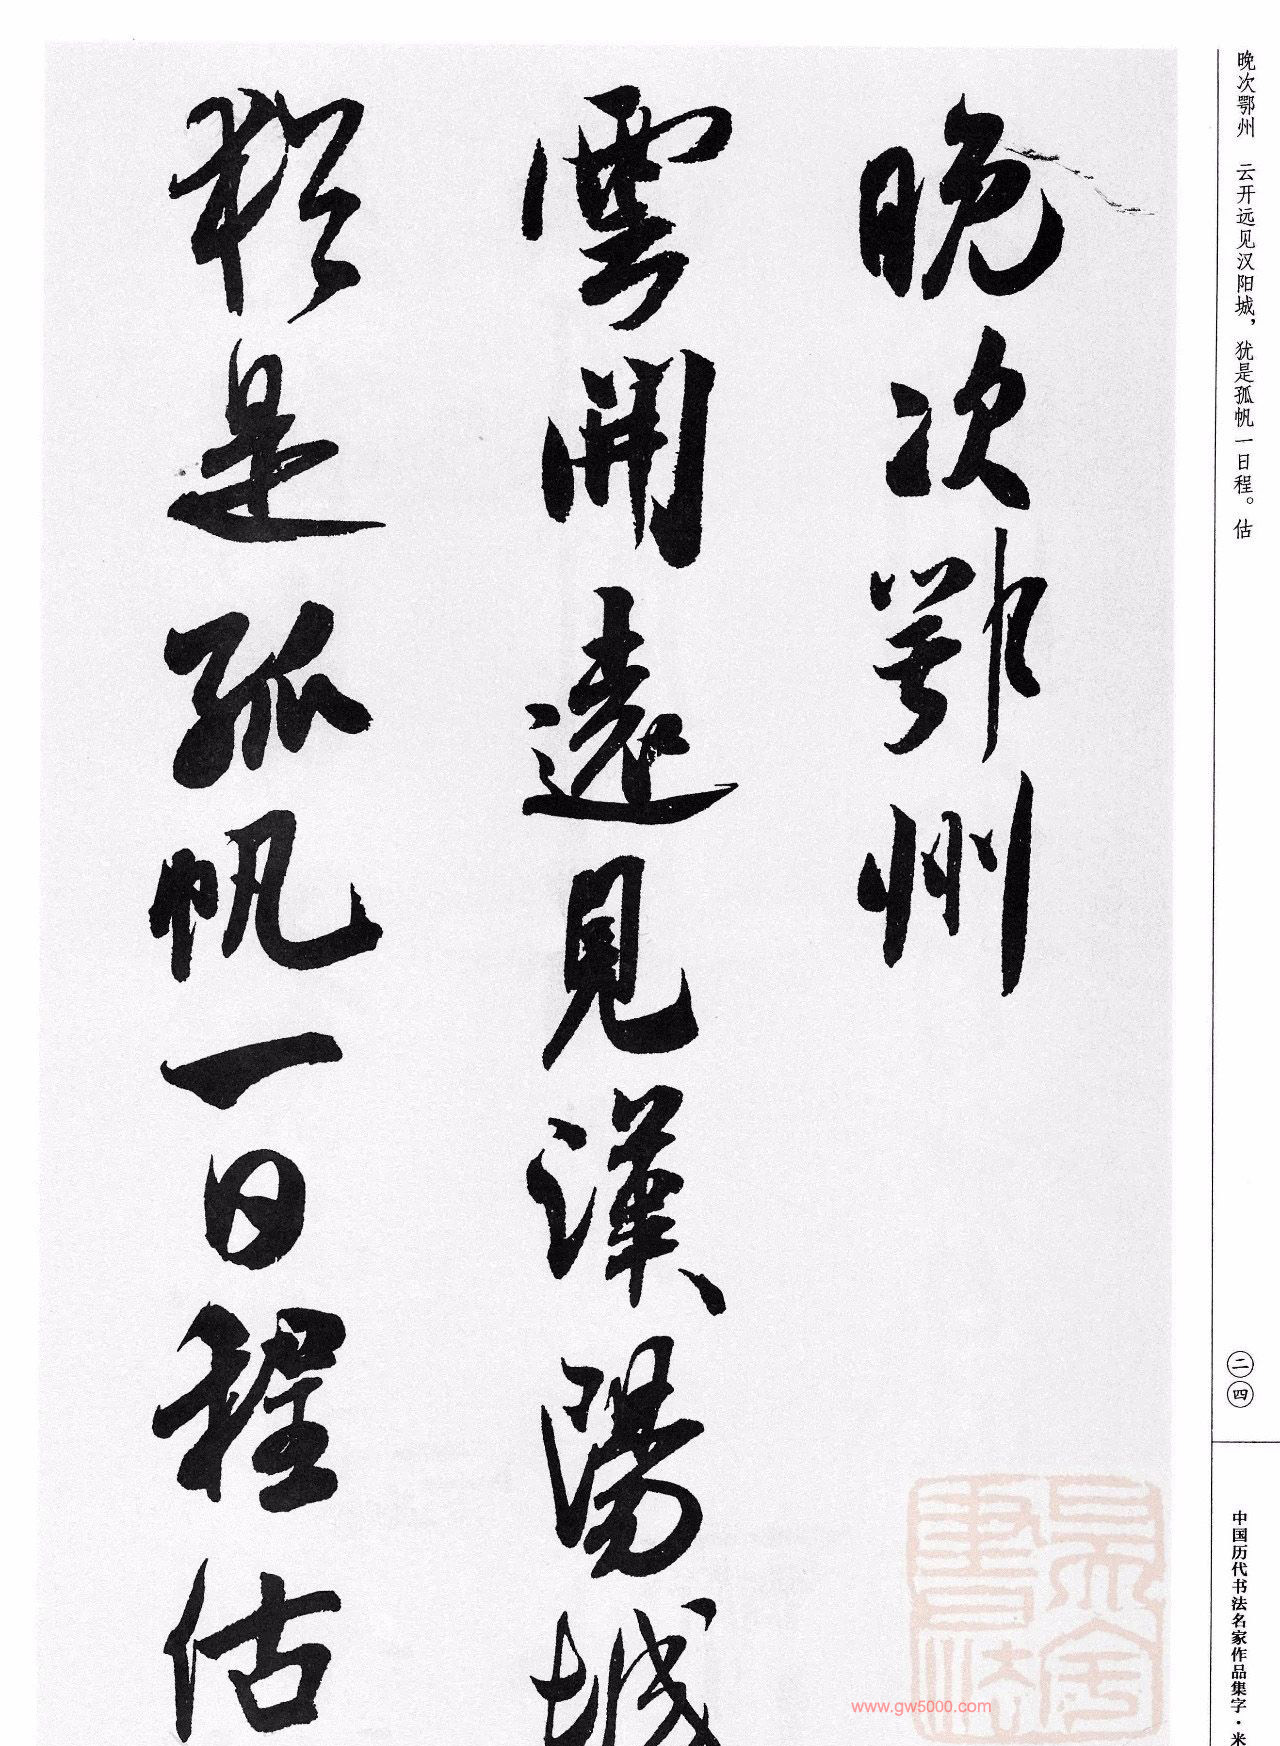 晚次鄂州　云开远见汉阳城，犹是孤帆一日程。估
晚次鄂州
雲開遠見漢陽城
猶是孤帆一日程估
二四
中国历代书法名家作品集字·米
www.gw5000.com